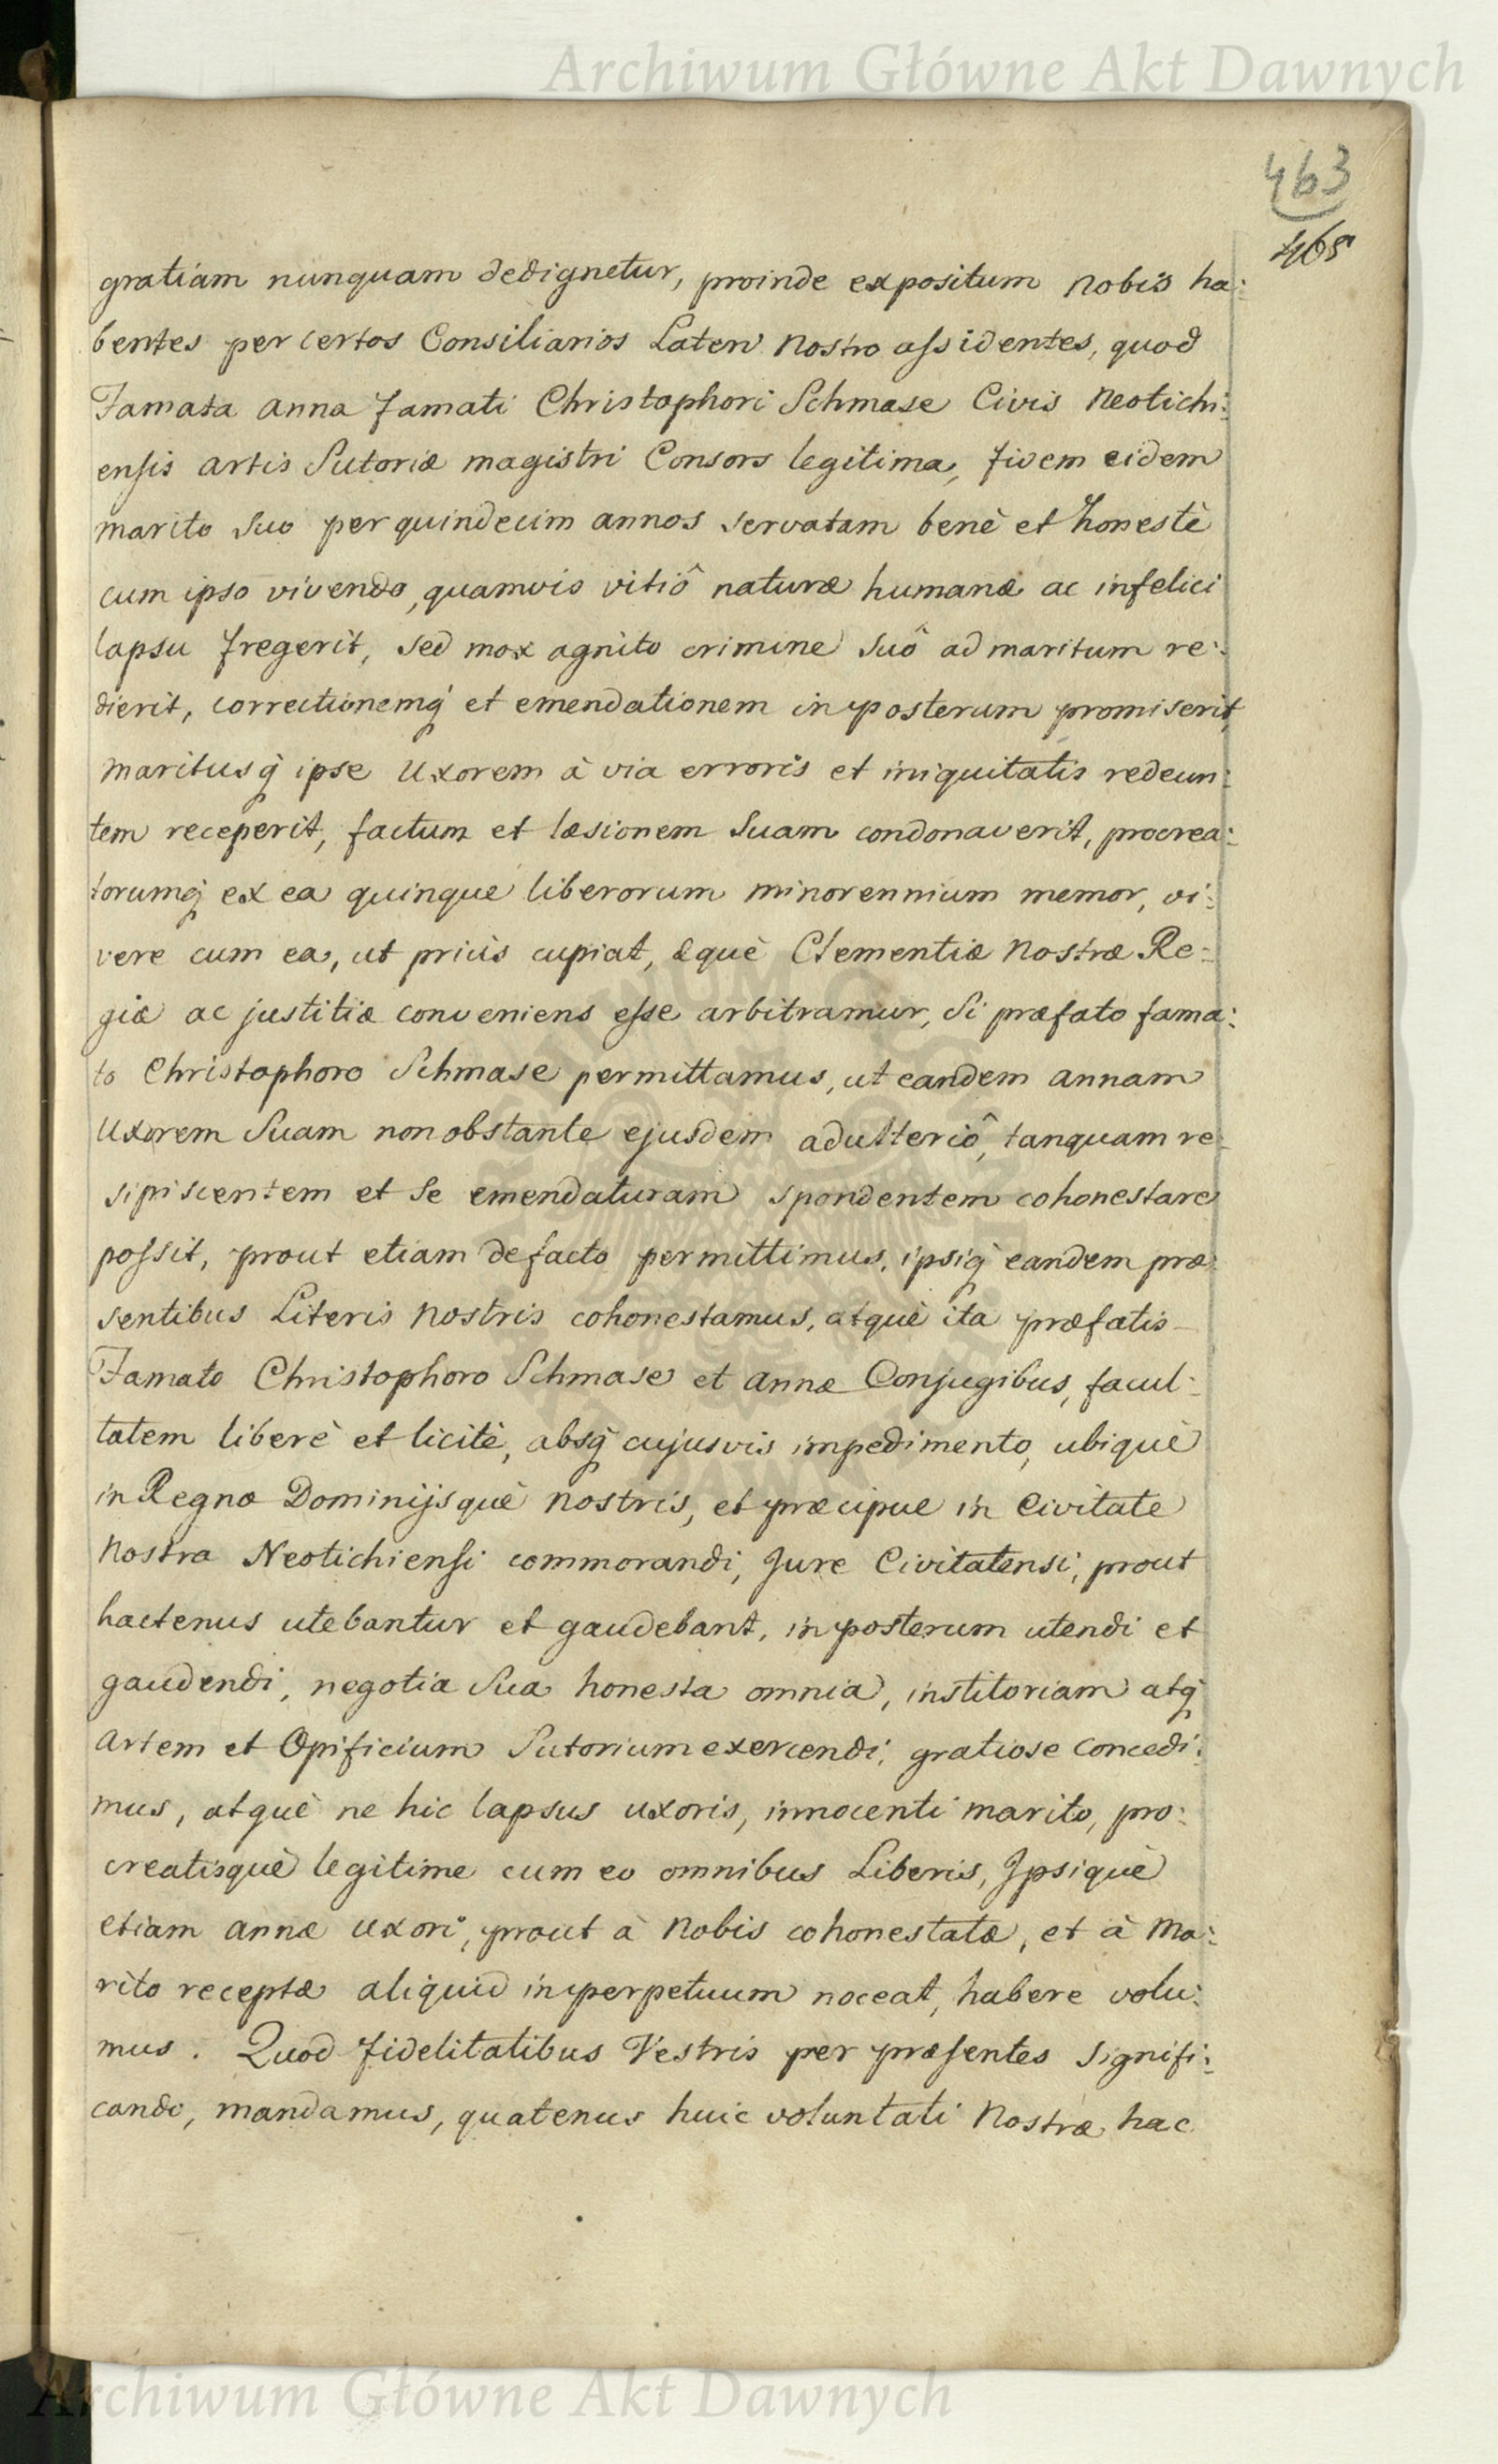 Archiwum Główne Akt Dawnych
463
465
gratiam nunquam dedignetur, proinde expositum nobis ha:
bentes per certos Consiliarios Lateri nostro assidentes, quod
Famata Anna famati Christophori Schmase Civis Neotichi:
ensis artis Sutoriæ magistri Consors legitima, fidem eidem
marito suo per quindecim annos servatam benè et honestè
cum ipso vivendo, quamvis vitiô naturæ humanæ ac infelici
lapsu fregerit, sed mox agnito crimine suô ad maritum re:
dierit, correctionemq́ et emendationem in posterum promiserit,
maritusq́ ipse Uxorem à via erroris et iniquitatis redeun:
tem receperit, factum et læsionem suam condonaverit, procrea:
torumq́ ex ea quinque liberorum minorennium memor, vi:
vere cum ea, ut priùs cupiat, æquè Clementiæ nostræ Re:
giæ ac justitiæ conveniens esse arbitramur, si præfato fama:
to Christophoro Schmase permittamus, ut eandem Annam
Uxorem suam non obstante ejusdem adulteriô, tanquam re:
sipiscentem et se emendaturam spondentem cohonestare
possit, prout etiam de facto permittimus, ipsiq́ eandem præ:
sentibus Literis nostris cohonestamus, atquè ita præfatis
Famato Christophoro Schmase et Annæ Conjugibus, facul:
tatem liberè et licitè, absq́ cujusvis impedimento, ubiquè
in Regno Dominijsquè nostris, et præcipue in Civitate
nostra Neotichiensi commorandi, Jure Civitatensi, prout
hactenus utebantur et gaudebant, in posterum utendi et
gaudendi, negotia sua honesta omnia, institoriam atq́
artem et Opificium Sutorium exercendi, gratiose concedi:
mus, atquè ne hic lapsus uxoris, innocenti marito, pro:
creatisquè legitime cum eo omnibus Liberis, Ipsiquè
etiam Annæ uxori, prout à nobis cohonestatæ, et à Ma:
rito receptæ aliquid in perpetuum noceat, habere volu:
mus. Quod fidelitatibus Vestris per præsentes signifi:
cando, mandamus, quatenus huic voluntati nostræ hac
Archiwum Główne Akt Dawnych